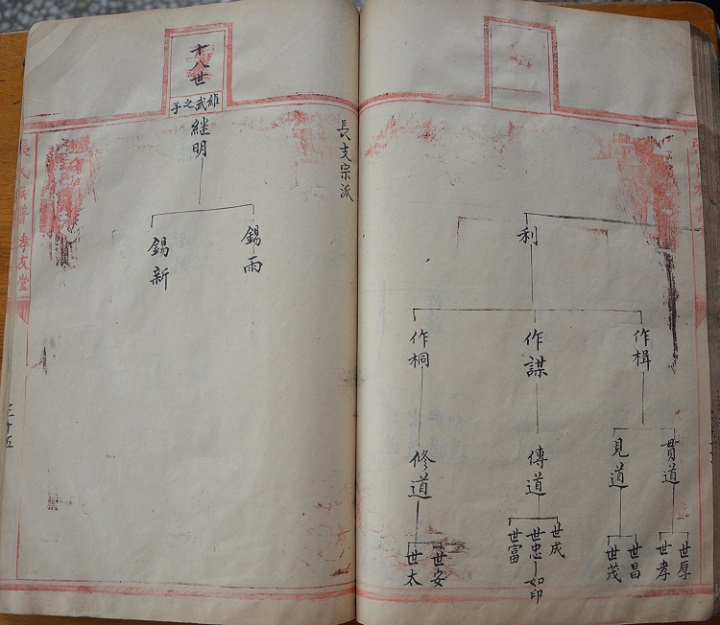 利
作楫
作謀
作桐
貫道
見道
傳道
修道
世厚
世孝
世昌
世茂
世成
世忠
如印
世富
世安
世太
長支宗派
十八世
雄武之子
継明
錫雨
錫新
孝友堂
三十五